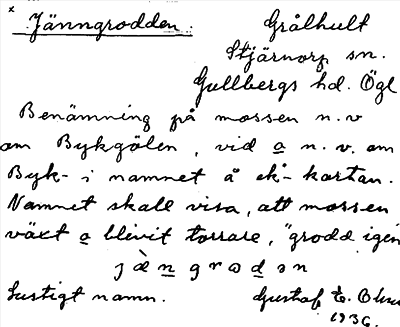 x Jänngrodden.
Grålhult
Stjärnorp sn.
Gullbergs hd. Ögl
Benämning på mossen n.v
om Bykgölen, vid a n.v. om
Byk- i namnet å ek-kartan.
Namnet skall visa, att mossen
växt o blivit torrare, "grodd igen
jὰngrodən
Lustigt namn.
Gustaf E.
1936.